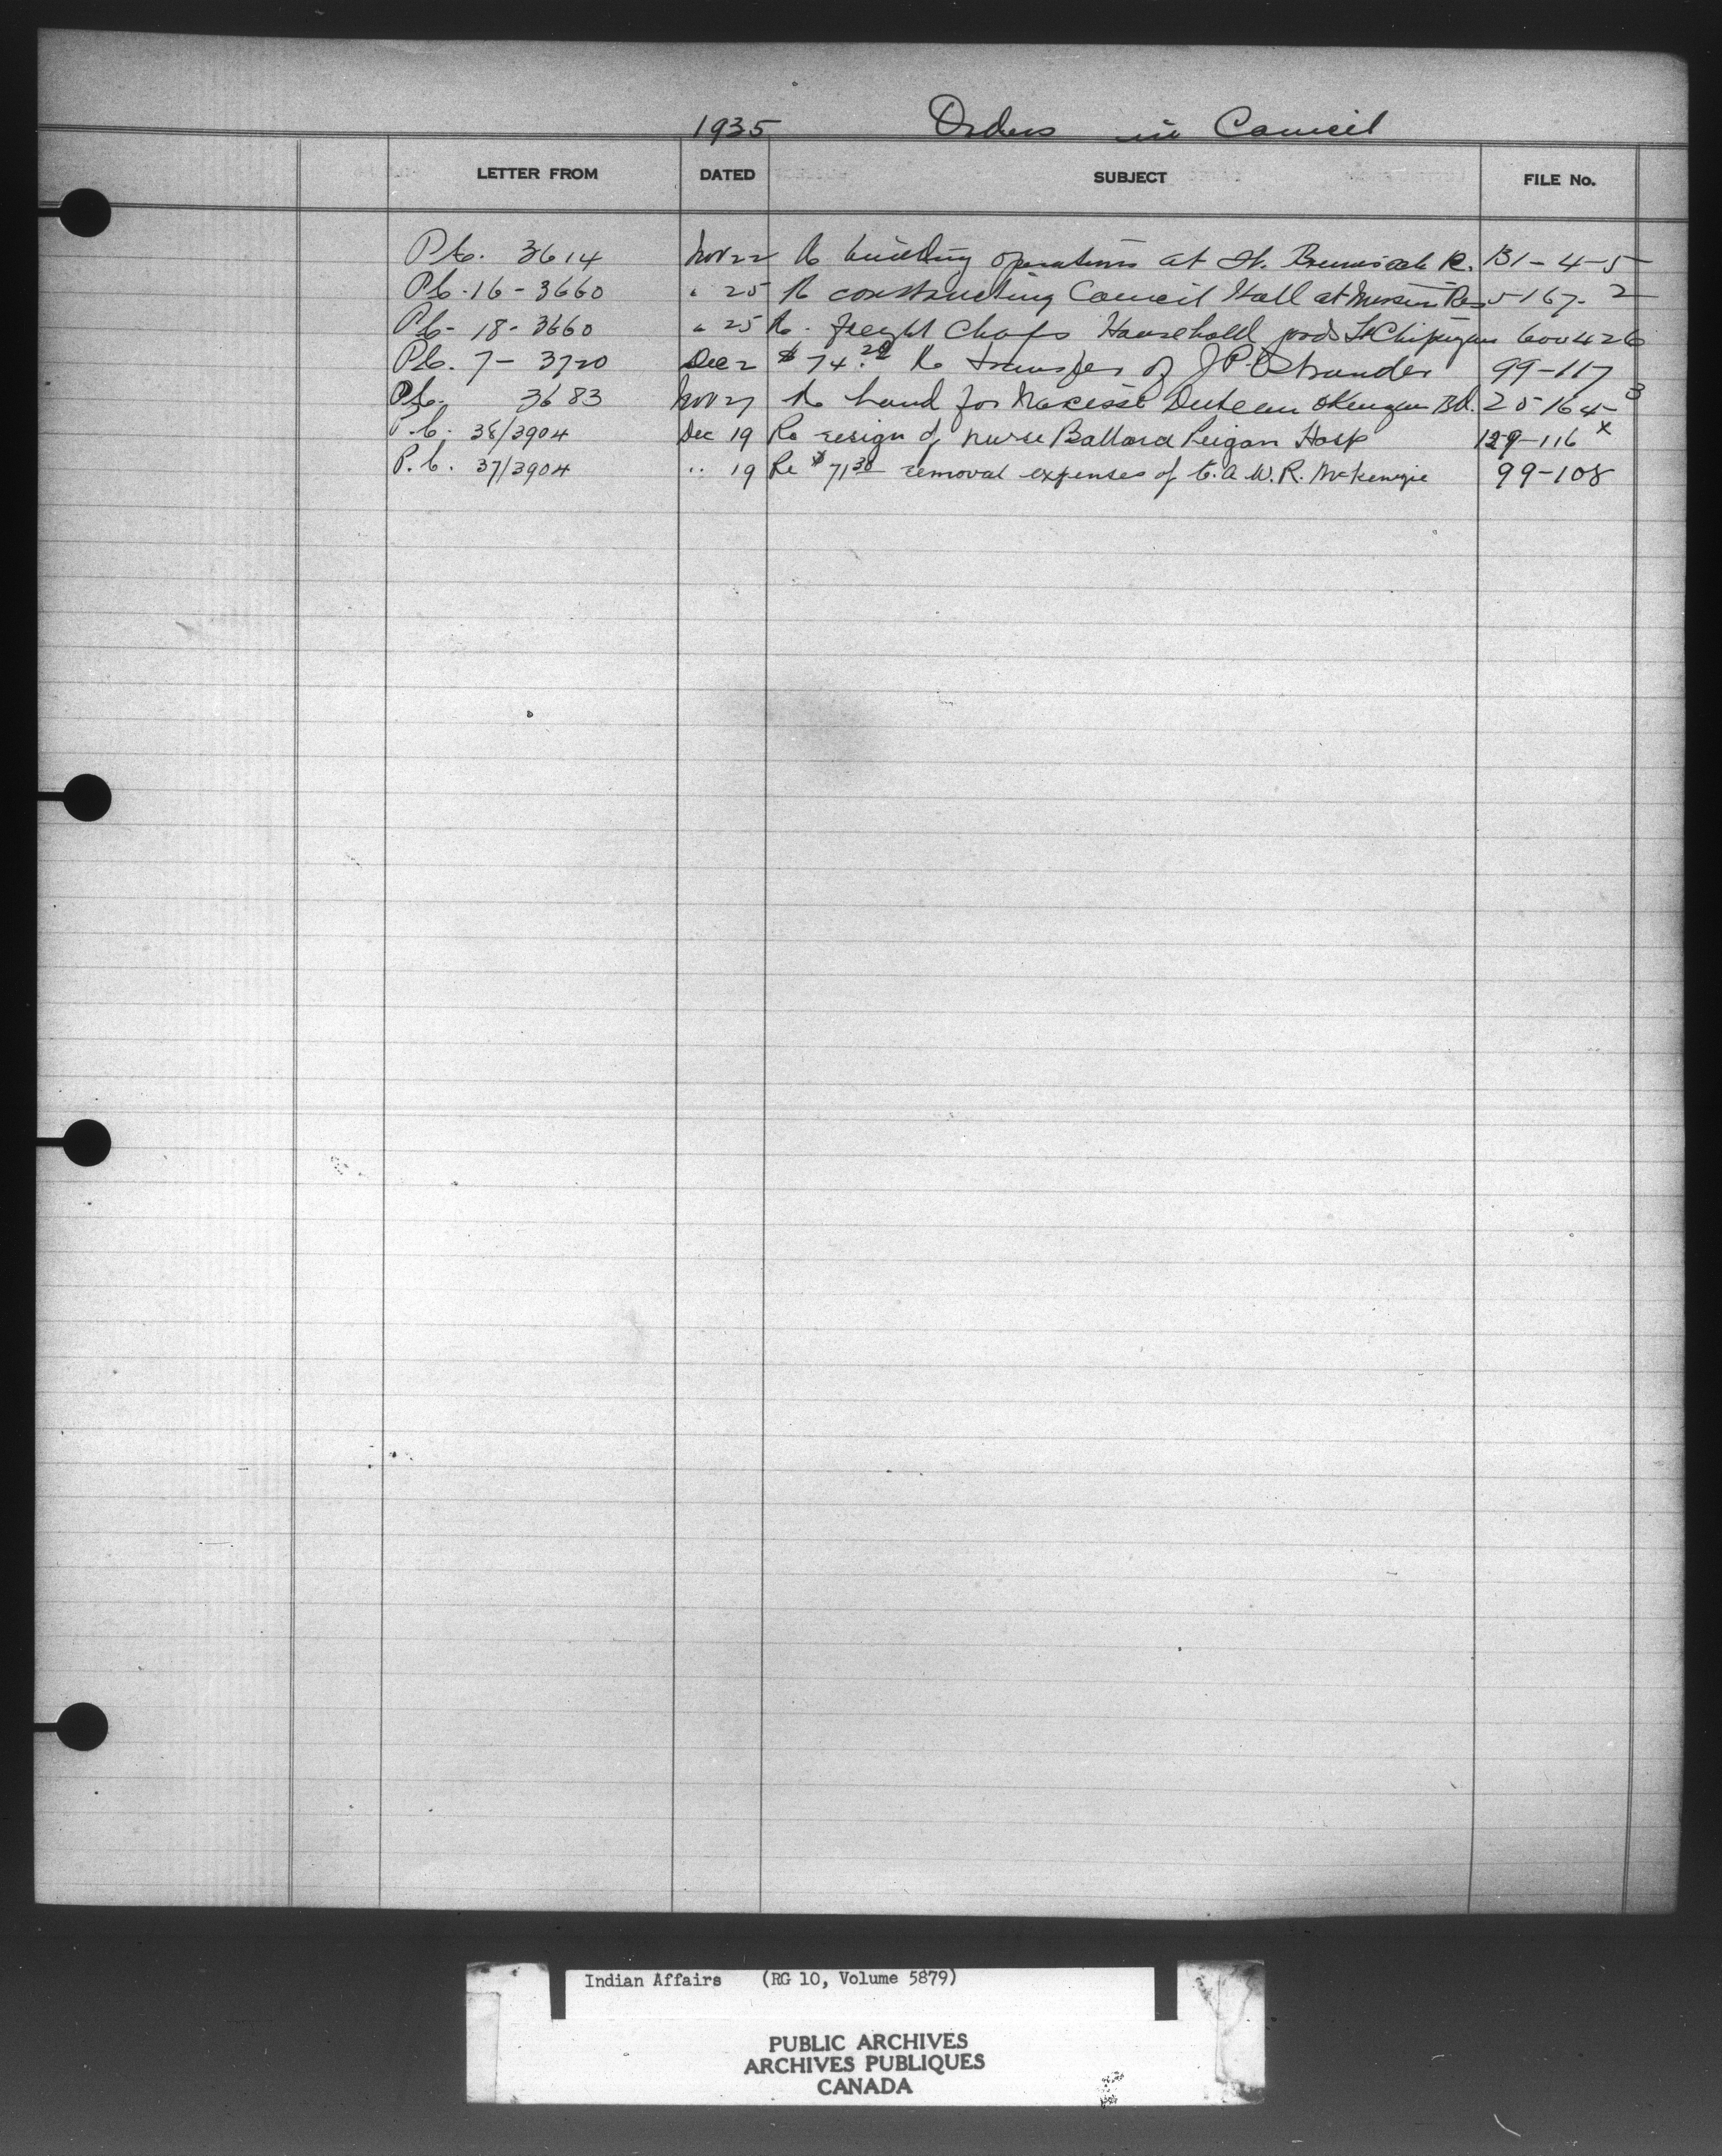 1935 Orders in Council
LETTER FROM DATED SUBJECT FILE No.
P.C. 3614 Nov 22 Re building operations at St. R. B1-4-5
P.C. 16-3660 " 25 Re constructing Council Hall at Res 5167-2
P.C. 18-3660 " 25 Re freight Household goods Ft Chipeyan 600426
P.C. 7-3720 Dec 2 $74.20 Re transfer of J P. Ostrander 99-117
P.C. 3683 Nov 27 Re land for Okengan Bd. 20164-3
P.C. 38/3904 Dec 19 Re resign of nurse Ballard Peigan Hosp 129-116 x
P.C. 37/3904 " 19 Re $71.30 removal expenses of C. A. W. R. McKenzie 99-108
Indian Affairs (RG 10, Volume 5879)
PUBLIC ARCHIVES
ARCHIVES PUBLIQUES
CANADA